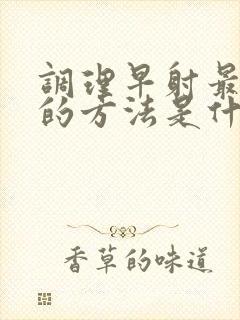 調理早射最
的方法是什
香草的味道